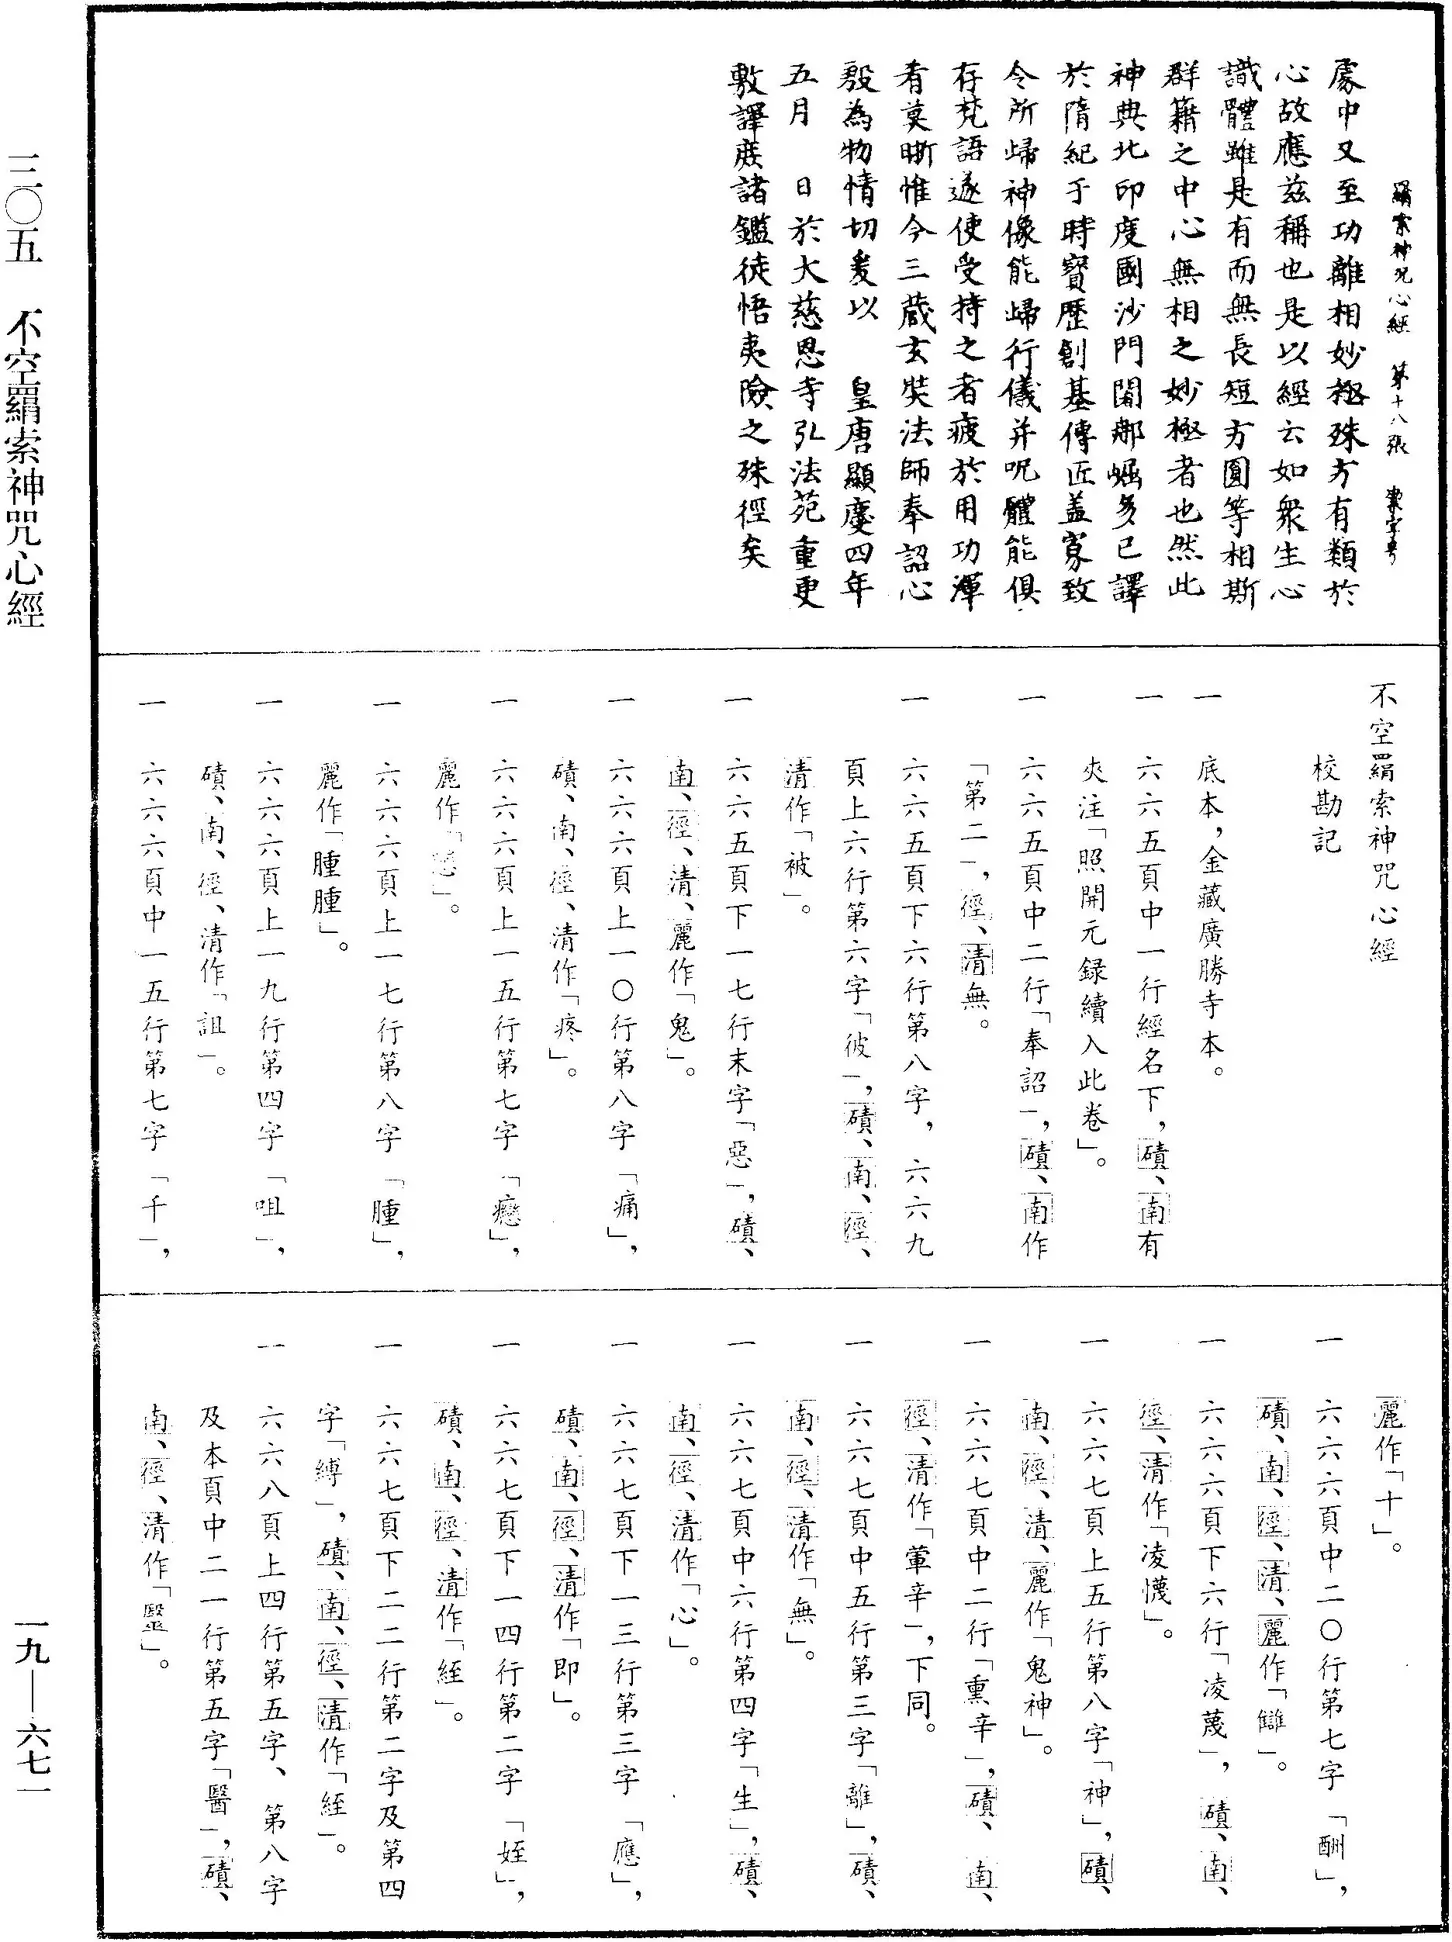 三〇五　不空羂索神咒心經
一九—六七一
羂索神咒心經　第十八張　
處中又至功離相妙極殊方有類於
心故應茲稱也是以經云如衆生心
識體雖是有而無長短方圓等相斯
群籍之中心無相之妙極者也然此
神典北印度國沙門闍那崛多已譯
於隋紀于時寶歷創基傳匠蓋寡致
令所歸神像能歸行儀并呪體能俱
存梵語遂使受持之者疲於用功渾
肴莫晰惟今三藏玄奘法師奉詔心
殷為物情切爰以　皇唐顯慶四年
五月　日於大慈恩寺弘法苑重更
敷譯庶諸鑑徒悟夷險之殊徑矣
不空羂索神咒心經
校勘記
一　底本，金藏廣勝寺本。
一　六六五頁中一行經名下，磧、南有
夾注「照開元録續入此卷」。
一　六六五頁中二行「奉詔」，磧、南作
「第二」，徑、清無。
一　六六五頁下六行第八字，六六九
頁上六行第六字「彼」，磧、南、徑、
清作「被」。
一　六六五頁下一七行末字「惡」，磧、
南、徑、清、麗作「鬼」。
一　六六六頁上一〇行第八字「痛」，
磧、南、徑、清作「疼」。
一　六六六頁上一五行第七字「癒」，
麗作「」。
一　六六六頁上一七行第八字「腫」，
麗作「腫腫」。
一　六六六頁上一九行第四字「咀」，
磧、南、徑、清作「詛」。
一　六六六頁中一五行第七字「千」，
麗作「十」。
一　六六六頁中二〇行第七字「酬」，
磧、南、徑、清、麗作「讎」。
一　六六六頁下六行「凌蔑」，磧、南、
徑、清作「凌懱」。
一　六六七頁上五行第八字「神」，磧、
南、徑、清、麗作「鬼神」。
一　六六七頁中二行「熏辛」，磧、南、
徑、清作「葷辛」，下同。
一　六六七頁中五行第三字「離」，磧、
南、徑、清作「無」。
一　六六七頁中六行第四字「生」，磧、
南、徑、清作「心」。
一　六六七頁下一三行第三字「應」，
磧、南、徑、清作「即」。
一　六六七頁下一四行第二字「姪」，
磧、南、徑、清作「絰」。
一　六六七頁下二二行第二字及第四
字「縛」，磧、南、徑、清作「絰」。
一　六六八頁上四行第五字、第八字
及本頁中二一行第五字「醫」，磧、
南、徑、清作「瑿」。